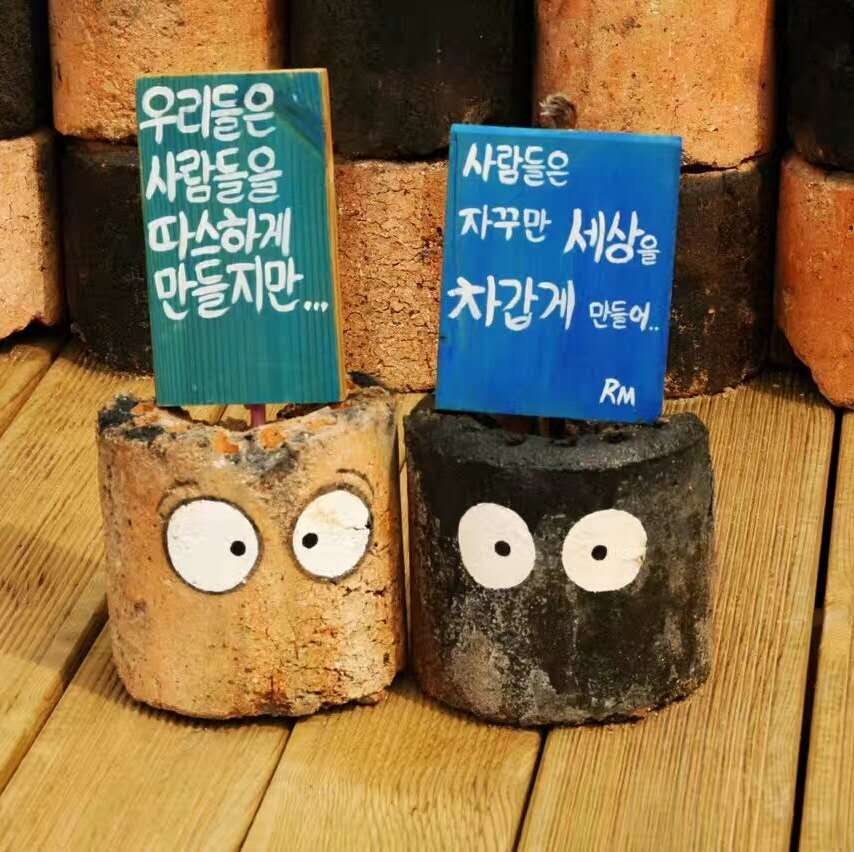 우리들은
사람들을
따스하게
만들지만...
사람들은
자꾸만 세상을
차갑게 만들어..
RM